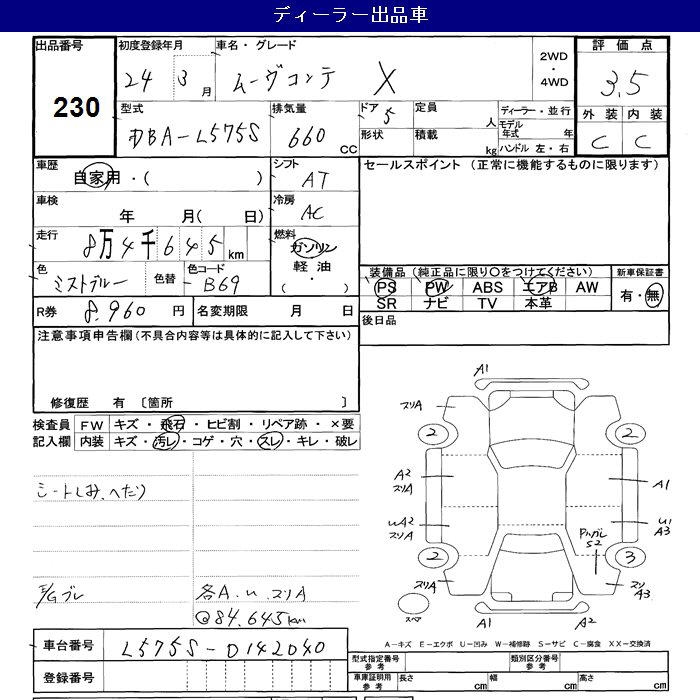 ディーラー出品車
出品番号
230
初度登録年月
24 3 月
車名・グレード
ムーヴコンテ X
2WD
・
4WD
評価点
3.5
外装 内装
C C
型式
DBA-L575S
排気量
660 CC
ドア 5
形状
定員 人
積載 kg
ディーラー・並行
モデル年式 年
ハンドル 左・右
車歴
自家用・( )
シフト
AT
セールスポイント (正常に機能するものに限ります)
車検
年 月( 日)
冷房
AC
走行
8万4千645km
燃料
ガソリン
軽油・
( )
色
ミストブルー
色替
色コード
B69
装備品(純正品に限り○をつけてください)
PS PW ABS エアB AW
SR ナビ TV 本革
新車保証書
有・無
R券 8.960 円
名変期限 月 日
後日品
注意事項申告欄(不具合内容等は具体的に記入して下さい)
修復歴 有 〔箇所 〕
検査員 FW キズ・飛石・ヒビ割・リペア跡・×要
記入欄 内装 キズ・汚レ・コゲ・穴・スレ・キレ・破レ
シートしみ、へたり
各A.u.スリA
@84.645km
A1
スリA
2 2
A2
スリA
A1
uA2
スリA
U1
A3
PハガレS2
2 3
スリA
スリ
A3
スペア
A1 A2
A-キズ E-エクボ U-凹み W-補修跡 S-サビ C-腐食 XX-交換済
車台番号 L575S-D142040
登録番号
型式指定番号
参考
類別区分番号
参考
車庫証明用
参考
長さ cm 幅 cm 高さ cm